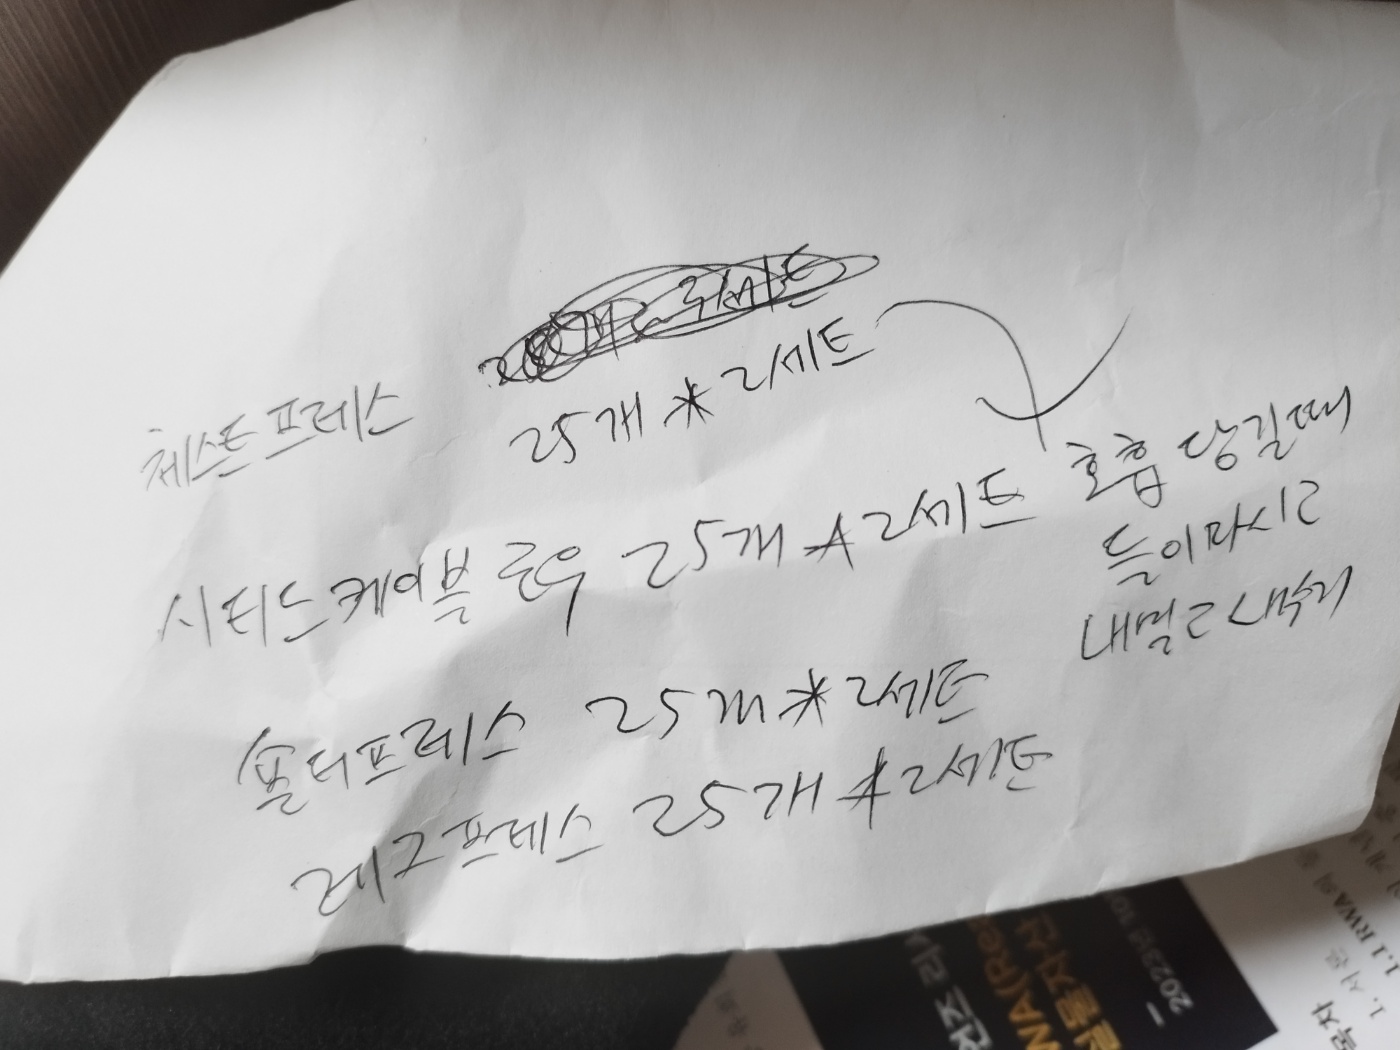 체스트프레스 25개 * 2세트
시티드케이블 로우 25개 * 2세트 호흡 당길때
들이마시고
내밀고 내쉬기
숄더프레스 25개 * 2세트
레그프레스 25개 * 2세트
2023년 10
1. 서론
1.1 RWA의
목차